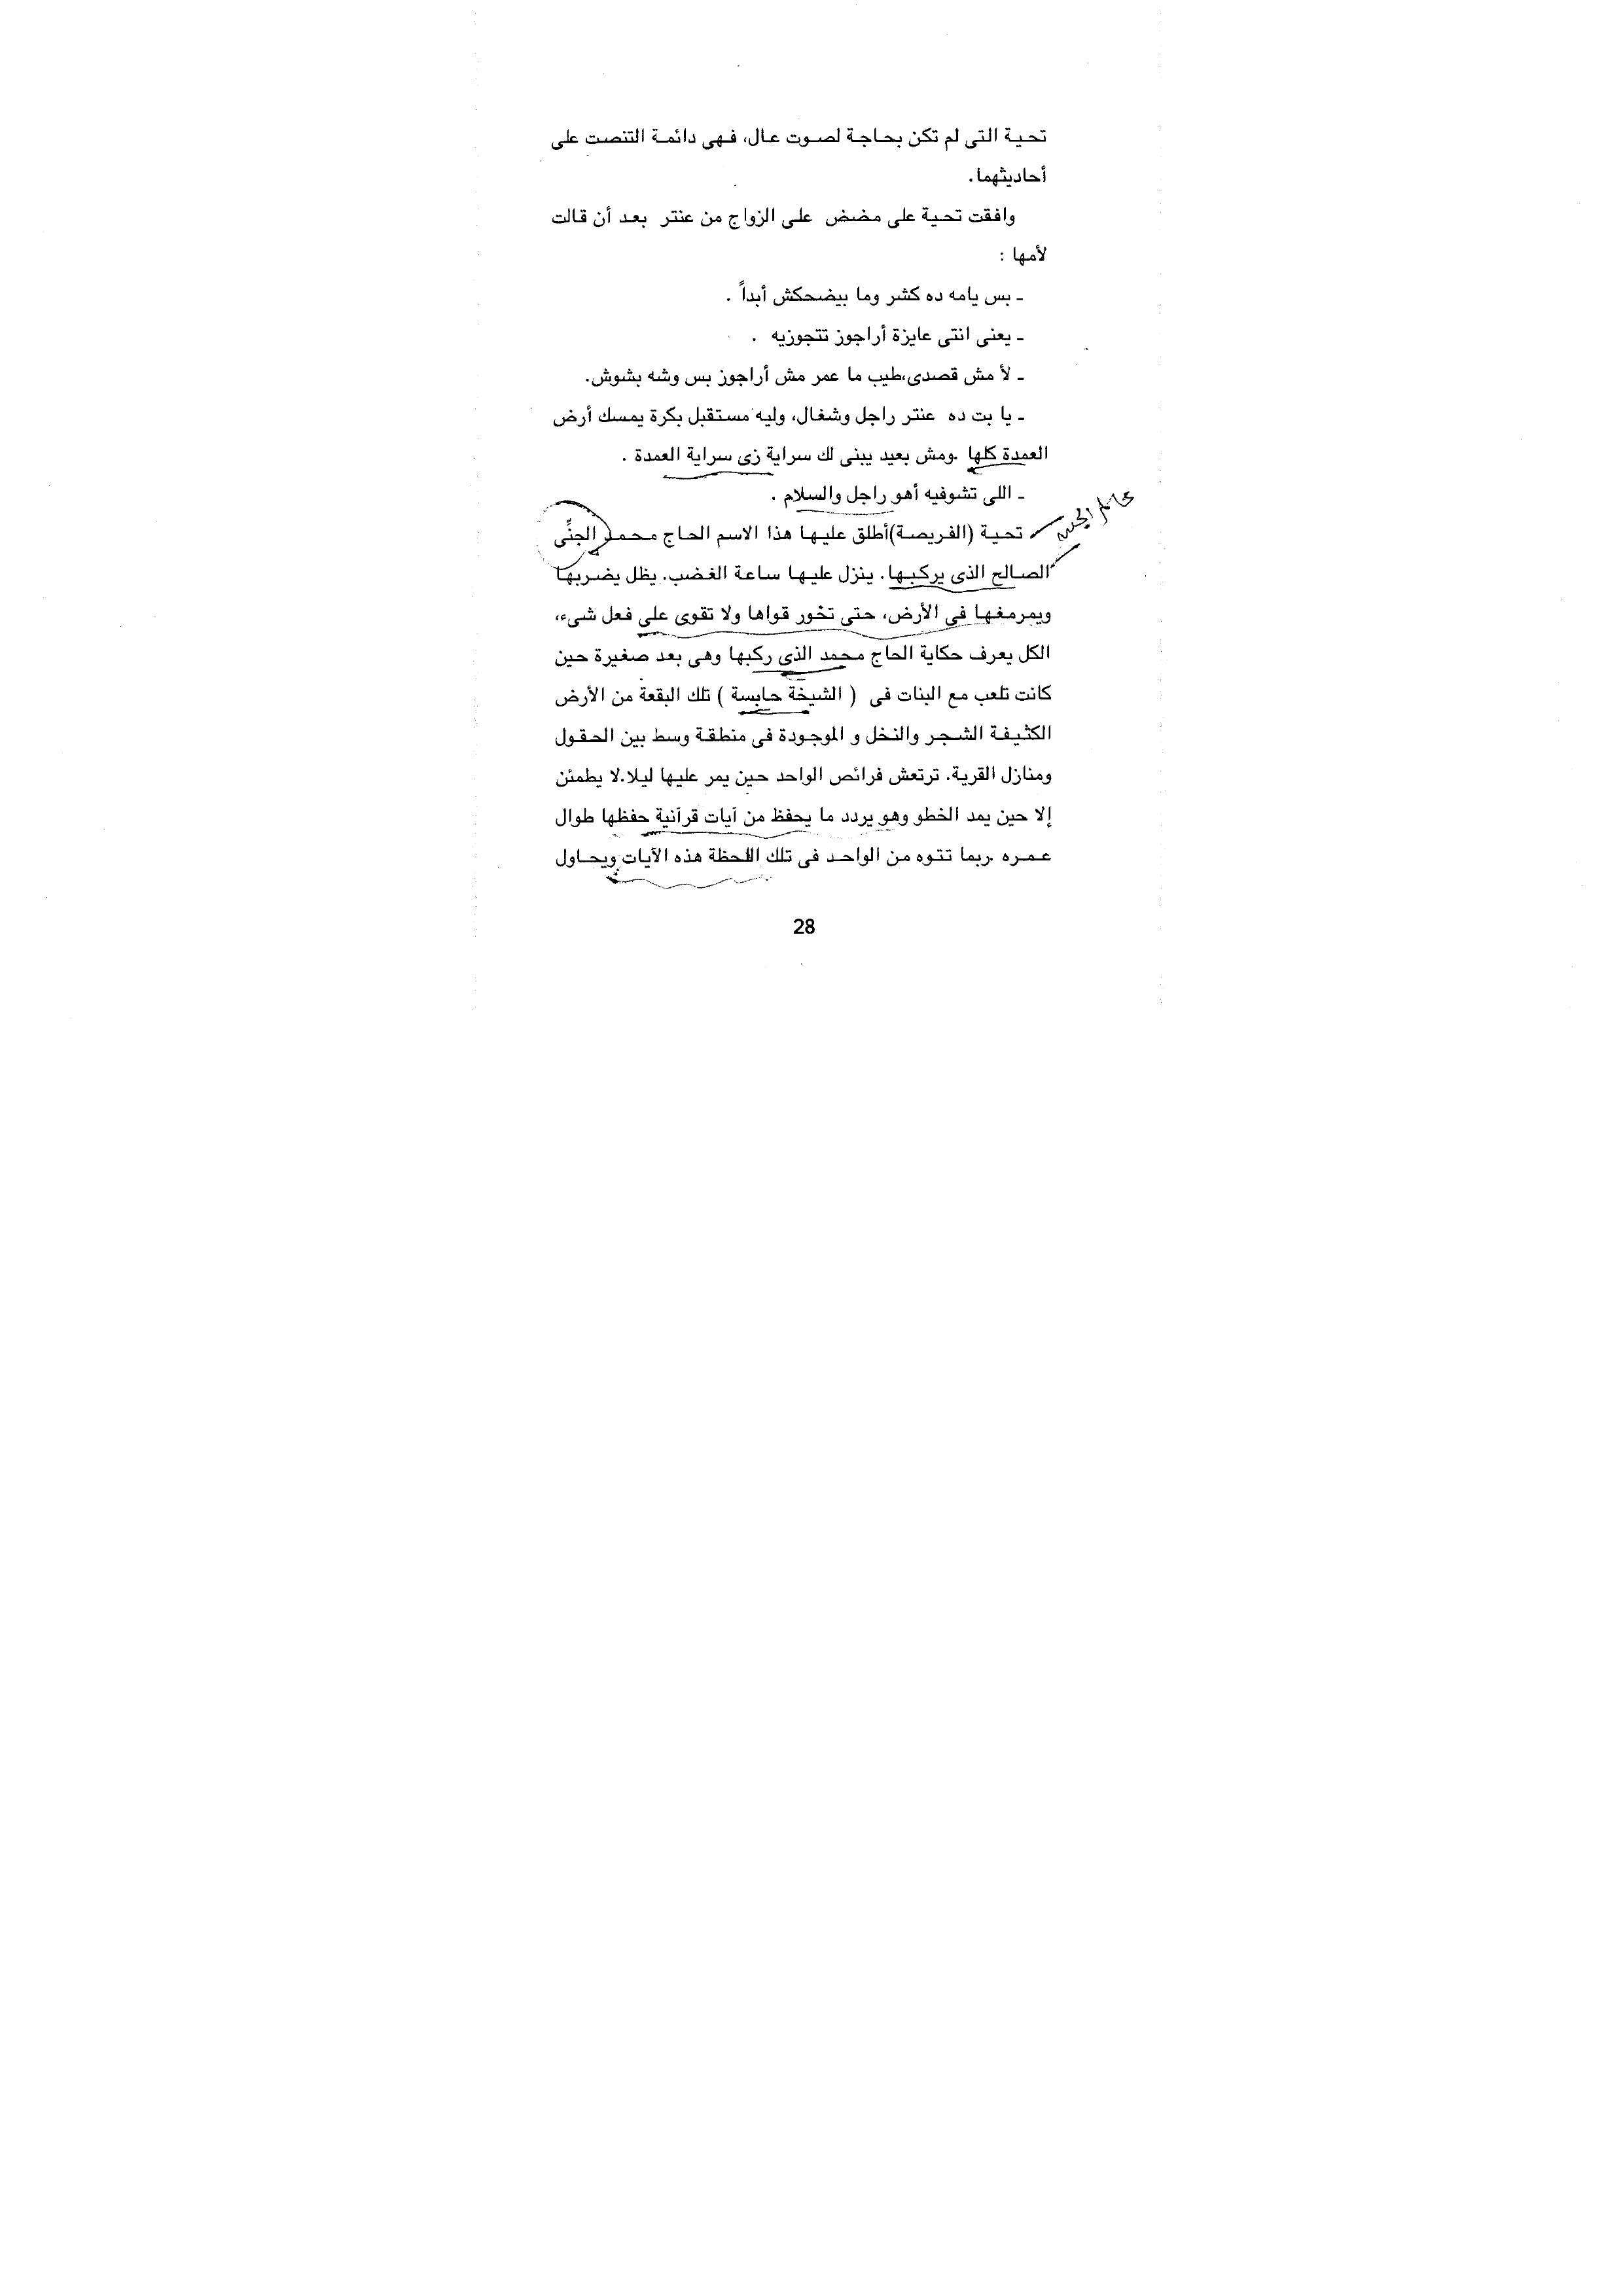 تحية التى لم تكن بحاجة لصوت عال، فهى دائمة التنصت على
أحاديثهما.
وافقت تحية على مضض على الزواج من عنتر بعد أن قالت
لأمها :
ـ بس يامه ده كشر وما بيضحكش أبداً .
ـ يعنى انتى عايزة أراجوز تتجوزيه .
ـ لأ مش قصدى،طيب ما عمر مش أراجوز بس وشه بشوش.
ـ يا بت ده عنتر راجل وشغال، وليه مستقبل بكرة يمسك أرض
العمدة كلها .ومش بعيد يبنى لك سراية زى سراية العمدة .
ـ اللى تشوفيه أهو راجل والسلام .
عالم الجن
تحية (الفريصة)أطلق عليها هذا الاسم الحاج محمد الجنِّى
الصالح الذى يركبها. ينزل عليها ساعة الغضب. يظل يضربها
ويمرمغها فى الأرض، حتى تخور قواها ولا تقوى على فعل شىء،
الكل يعرف حكاية الحاج محمد الذى ركبها وهى بعد صغيرة حين
كانت تلعب مع البنات فى ( الشيخة حابسة ) تلك البقعة من الأرض
الكثيفة الشجر والنخل و الموجودة فى منطقة وسط بين الحقول
ومنازل القرية. ترتعش فرائص الواحد حين يمر عليها ليلا.لا يطمئن
إلا حين يمد الخطو وهو يردد ما يحفظ من آيات قرآنية حفظها طوال
عمره .ربما تتوه من الواحد فى تلك اللحظة هذه الآيات ويحاول
28